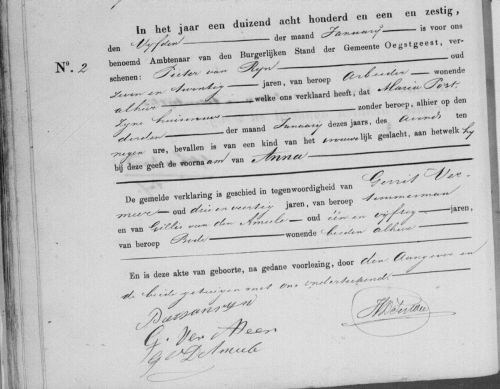 In het jaar een duizend acht honderd en een en zestig,
den Vyfden der maand January is voor ons
benoemd Ambtenaar van den Burgerlijken Stand der Gemeente Oegstgeest, ver-
Nº. 2 schenen: Pieter van Ryn oud
Zeven en twintig jaren, van beroep Arbeider wonende
alhier welke ons verklaard heeft, dat Maria Post
Zyne huisvrouw zonder beroep, alhier op den
derden der maand January dezes jaars, des avonds ten
negen ure, bevallen is van een kind van het vrouwelijk geslacht, aan hetwelk hy
bij deze geeft de voornaam van Anna
De gemelde verklaring is geschied in tegenwoordigheid van Gerrit Ver-
meer oud drie en veertig jaren, van beroep timmerman
en van Gillis van den Ameele oud één en vyftig jaren,
van beroep Bode wonende beiden alhier
En is deze akte van geboorte, na gedane voorlezing, door den Aangever en
de beide getuigen met ons onderteekend.
G. Ver Meer